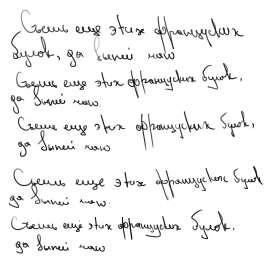 Съешь еще этих французских
булок, да выпей чаю
Съешь еще этих французских булок,
да выпей чаю.
Съешь еще этих французских булок,
да выпей чаю
Съешь еще этих французских булок
да выпей чаю.
Съешь еще этих французских булок,
да выпей чаю